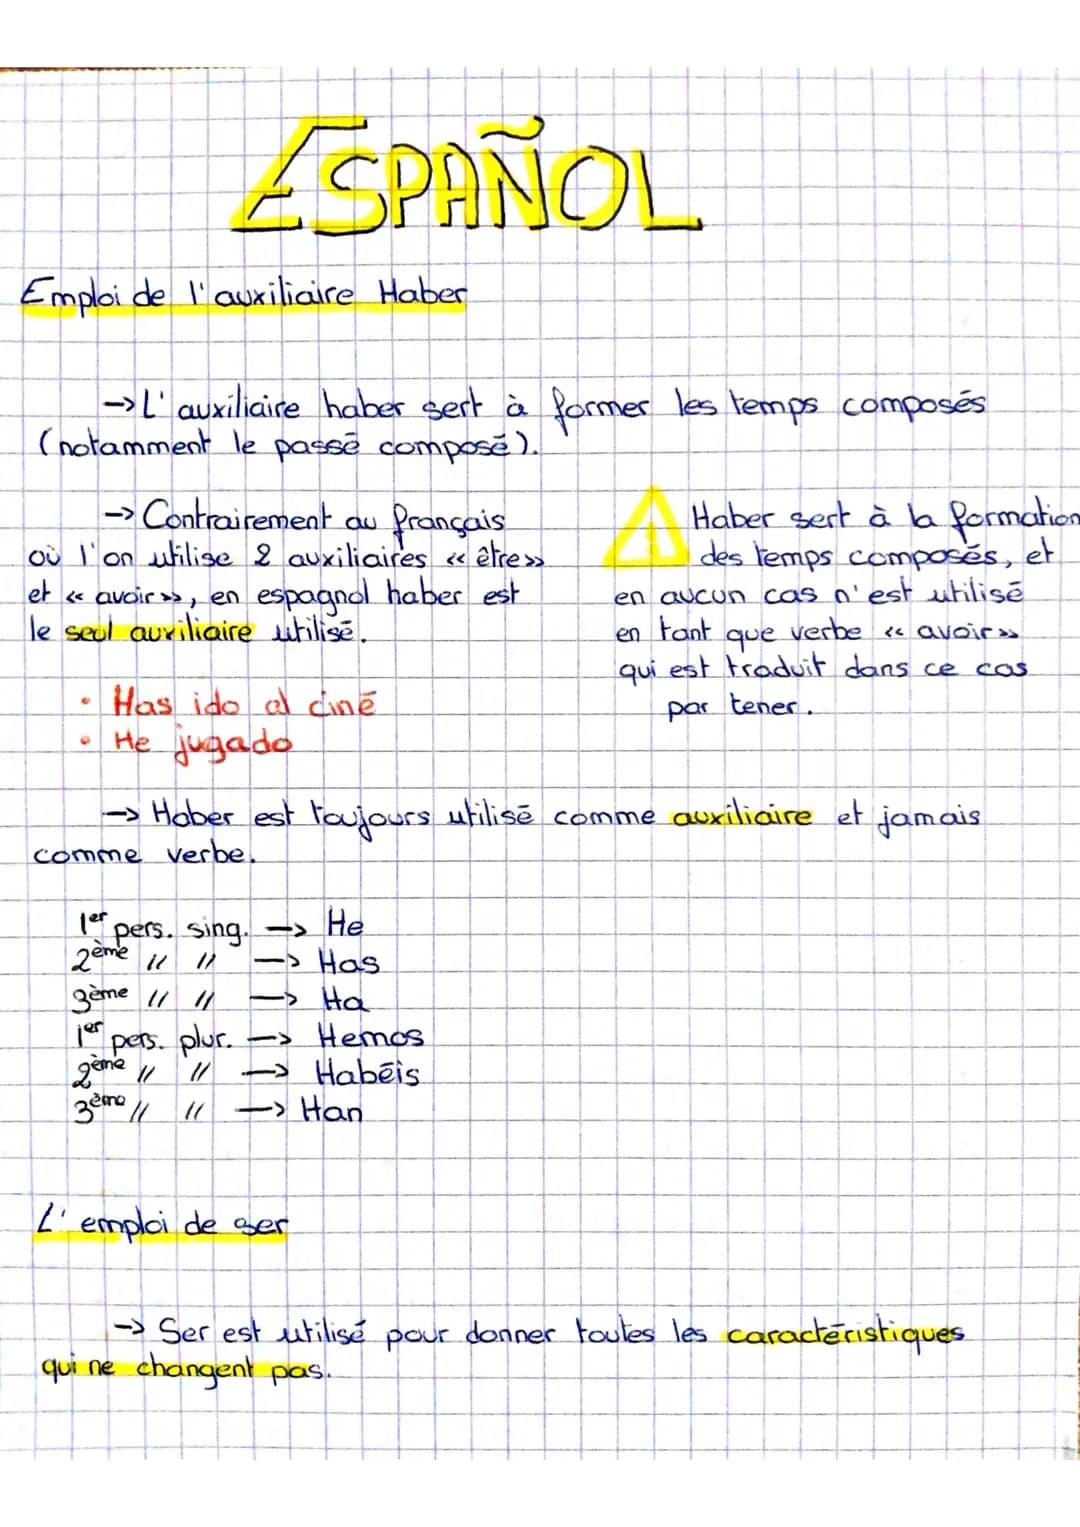 ESPAÑOL
Emploi de l'auxiliaire Haber
→ L'auxiliaire haber sert à former les temps composés
(notamment le passé composé).
→ Contrairement au français
où l'on utilise 2 auxiliaires « être »
et « avoir », en espagnol haber est
le seul auxiliaire utilisé.
Haber sert à la formation
des temps composés, et
en aucun cas n'est utilisé
en tant que verbe « avoir »
qui est traduit dans ce cas
par tener.
• Has ido al ciné
• He jugado
→ Haber est toujours utilisé comme auxiliaire et jamais
comme verbe.
1er pers. sing. → He
2ème // // → Has
3ème // // → Ha
1er pers. plur. → Hemos
2ème // // → Habéis
3ème // // → Han
L'emploi de ser
→ Ser est utilisé pour donner toutes les caractéristiques
qui ne changent pas.